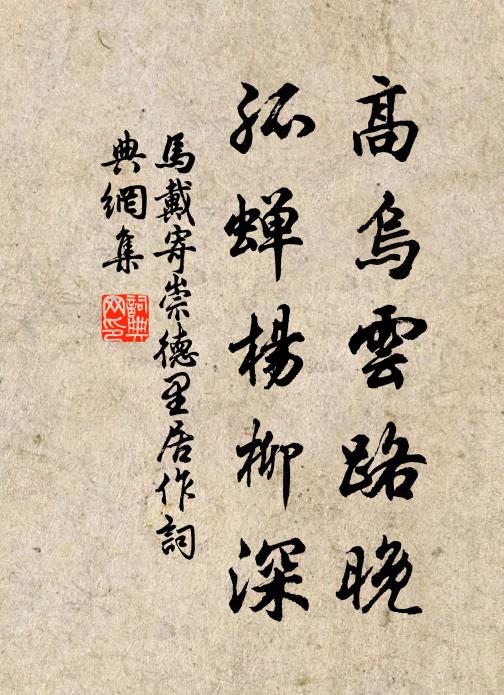 高鳥雲路晚
孤蟬楊柳深
馬戴寄崇德里居作詞
典網集
詞典
网印